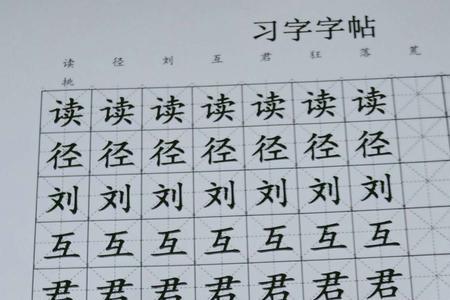 习字字帖
读 径 刘 互 君 狂 落 荒
挑
读 读 读 读 读 读 读
径 径 径 径 径 径 径
刘 刘 刘 刘 刘 刘 刘
互 互 互 互 互 互 互
君 君 君 君 君 君 君